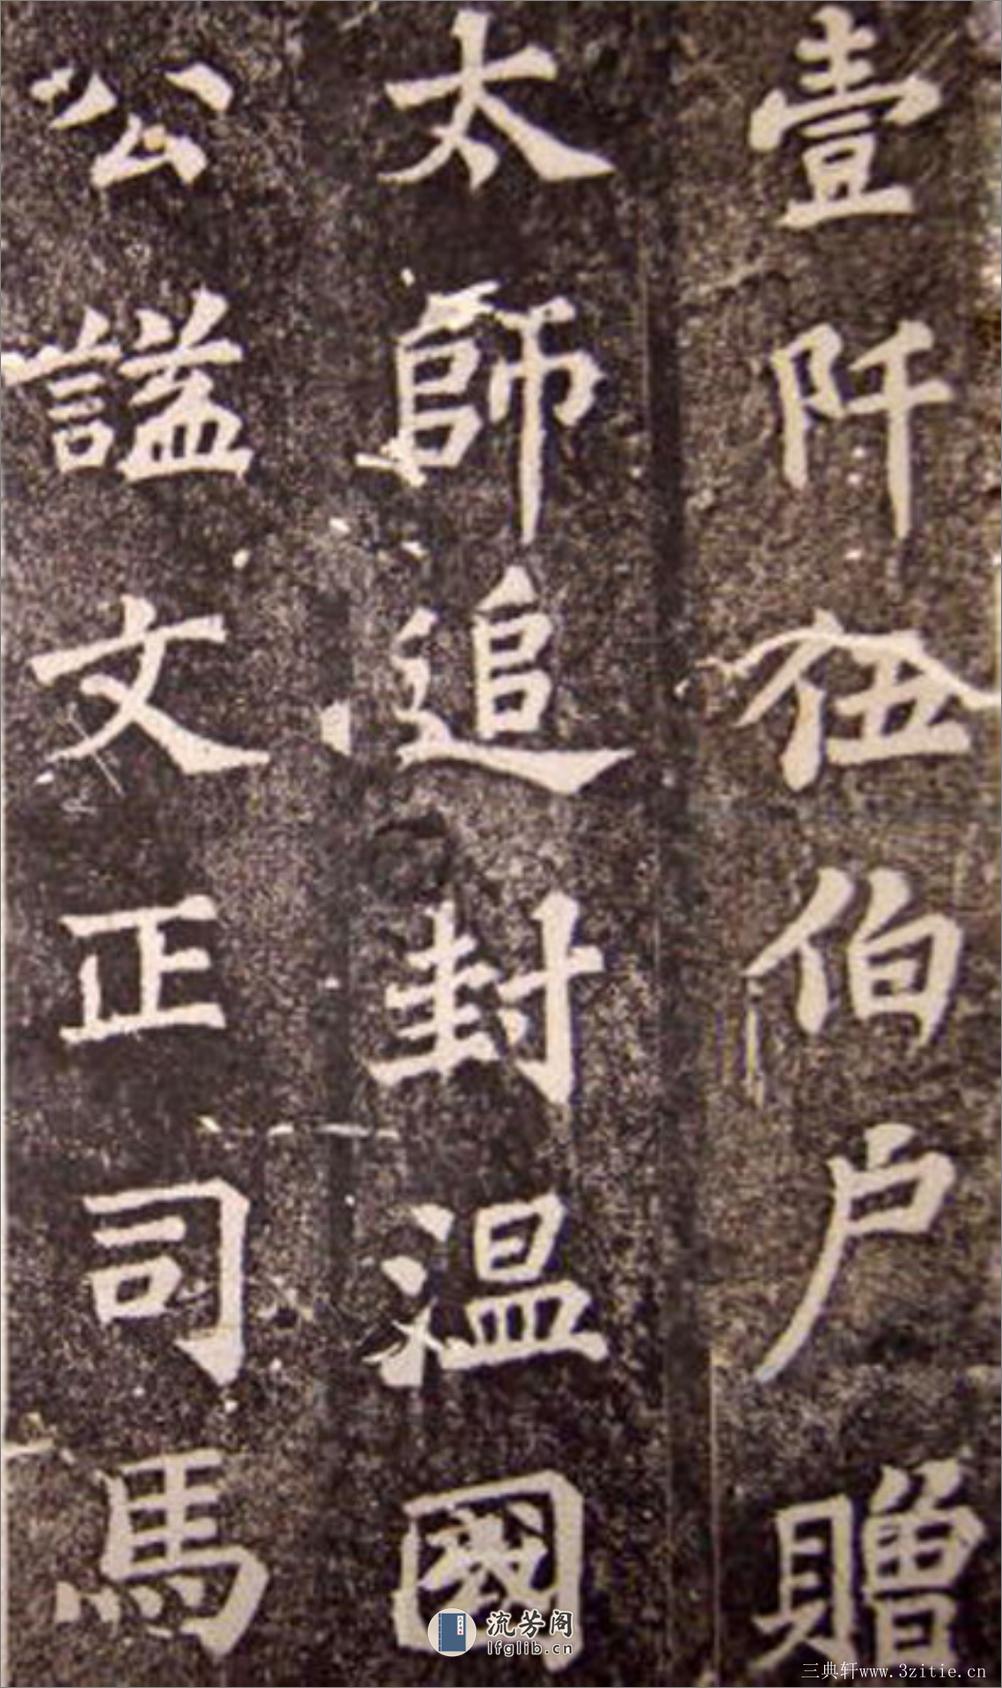 壹阡伍伯户贈
太師追封温國
公謚文正司馬
流芳阁
lfglib.cn
三典轩www.3zitie.cn